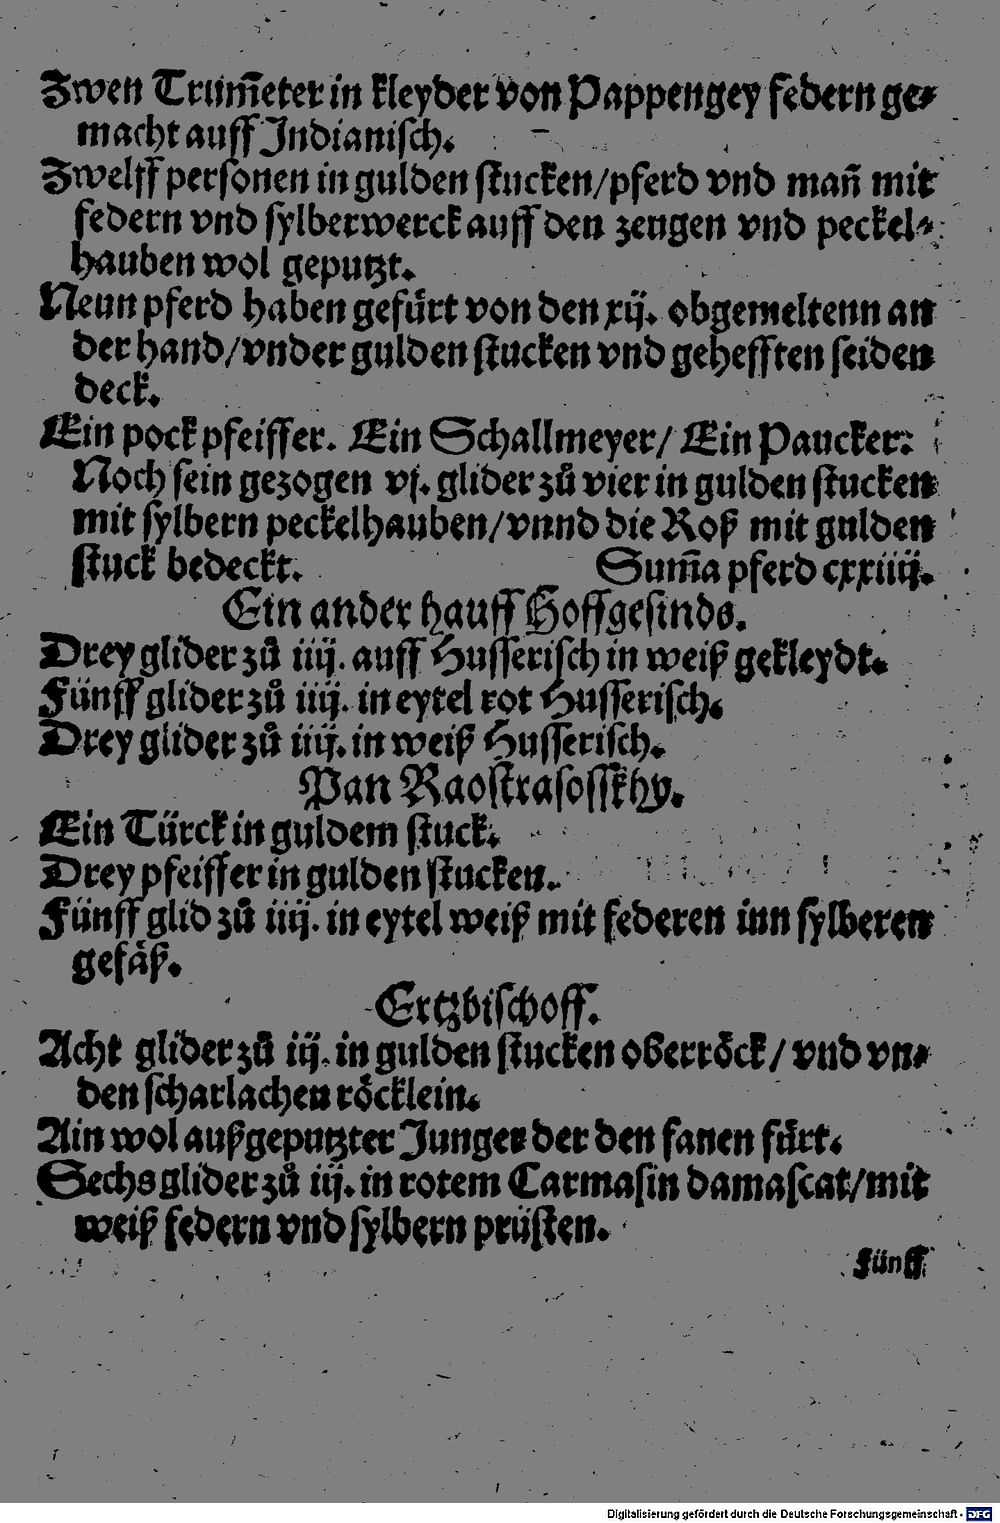 Zwen Trum̃eter in kleyder von Pappengey federn ge⸗
macht auff Indianisch.
Zwelff personen in gulden stucken/pferd vnd mañ mit
federn vnd sylberwerck auff den zeugen vnd peckel⸗
hauben wol geputzt.
Neun pferd haben gefürt von den xij. obgemeltenn an
der hand/vnder gulden stucken vnd gehefften seiden
deck.
Ein pock pfeiffer. Ein Schallmeyer/ Ein Paucker:
Noch sein gezogen vj. glider zů vier in gulden stucken
mit sylbern peckelhauben/vnnd die Roß mit gulden
stuck bedeckt. Sum̃a pferd cxxiiij.
Ein ander hauff Hoffgesinds.
Drey glider zů iiij. auff Husserisch in weiß gekleydt.
Fünff glider zů iiij. in eytel rot Husserisch.
Drey glider zů iiij. in weiß Husserisch.
Pan Raostrasosskhy.
Ein Türck in guldem stuck.
Drey pfeiffer in gulden stucken.
Fünff glid zů iiij. in eytel weiß mit federen inn sylberen
gefäß.
Ertzbischoff.
Acht glider zů iij. in gulden stucken oberröck/ vnd vn⸗
den scharlachen röcklein.
Ain wol außgeputzter Junger der den fanen fürt.
Sechs glider zů iij. in rotem Carmasin damascat/mit
weiß federn vnd sylbern prüsten.
Fünff
Digitalisierung gefördert durch die Deutsche Forschungsgemeinschaft - DFG